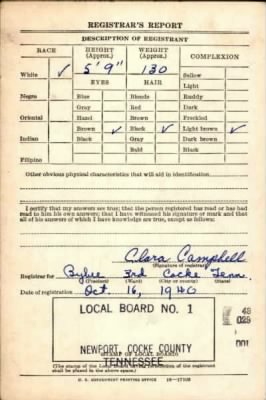 REGISTRAR'S REPORT
DESCRIPTION OF REGISTRANT
RACE
HEIGHT
(Approx.)
WEIGHT
(Approx.)
COMPLEXION
White ✓
5' 9"
130
Sallow
EYES
HAIR
Light
Negro
Blue
Blonde
Ruddy
Gray
Red
Dark
Oriental
Hazel
Brown
Freckled
Brown ✓
Black ✓
Light brown ✓
Indian
Black
Gray
Dark brown
Bald
Black
Filipino
Other obvious physical characteristics that will aid in identification
I certify that my answers are true; that the person registered has read or has had
read to him his own answers; that I have witnessed his signature or mark and that
all of his answers of which I have knowledge are true, except as follows:
Clara Campbell
(Signature of registrar)
Registrar for 3rd Cocke Tenn.
(Precinct) (Ward) (City or county) (State)
Date of registration Oct. 16, 1940
LOCAL BOARD NO. 1
48
029
001
NEWPORT, COCKE COUNTY
(STAMP OF LOCAL BOARD)
TENNESSEE
(The stamp of the Local Board having jurisdiction of the registrant
shall be placed in the above space.)
U. S. GOVERNMENT PRINTING OFFICE 16—17105